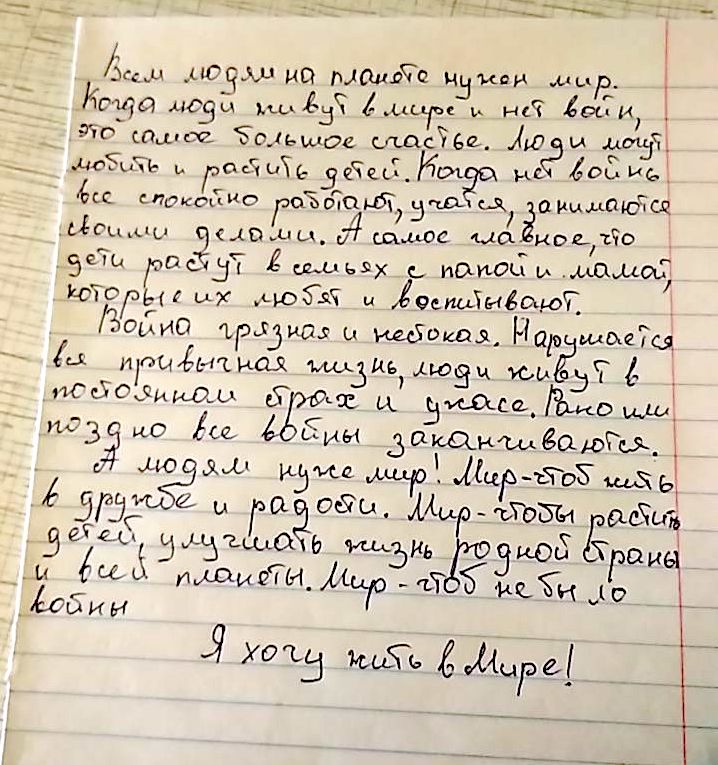 Всем людям на планете нужен мир.
Когда люди живут в мире и нет войн,
это самое большое счастье. Люди могут
любить и растить детей. Когда нет войнь
все спокойно работают, учатся, занимаются
своими делами. А самое главное, что
дети растут в семьях с папой и мамой,
которые их любят и воспитывают.
Война грязная и жестокая. Нарушается
вся привычная жизнь, люди живут в
постоянном страх и ужасе. Рано или
поздно все войны заканчиваются.
А людям нуже мир! Мир-чтоб жить
в дружбе и радости. Мир-чтобы растить
детей, улучшать жизнь родной страны
и всей планеты. Мир-чтоб не было
войны
Я хочу жить в Мире!